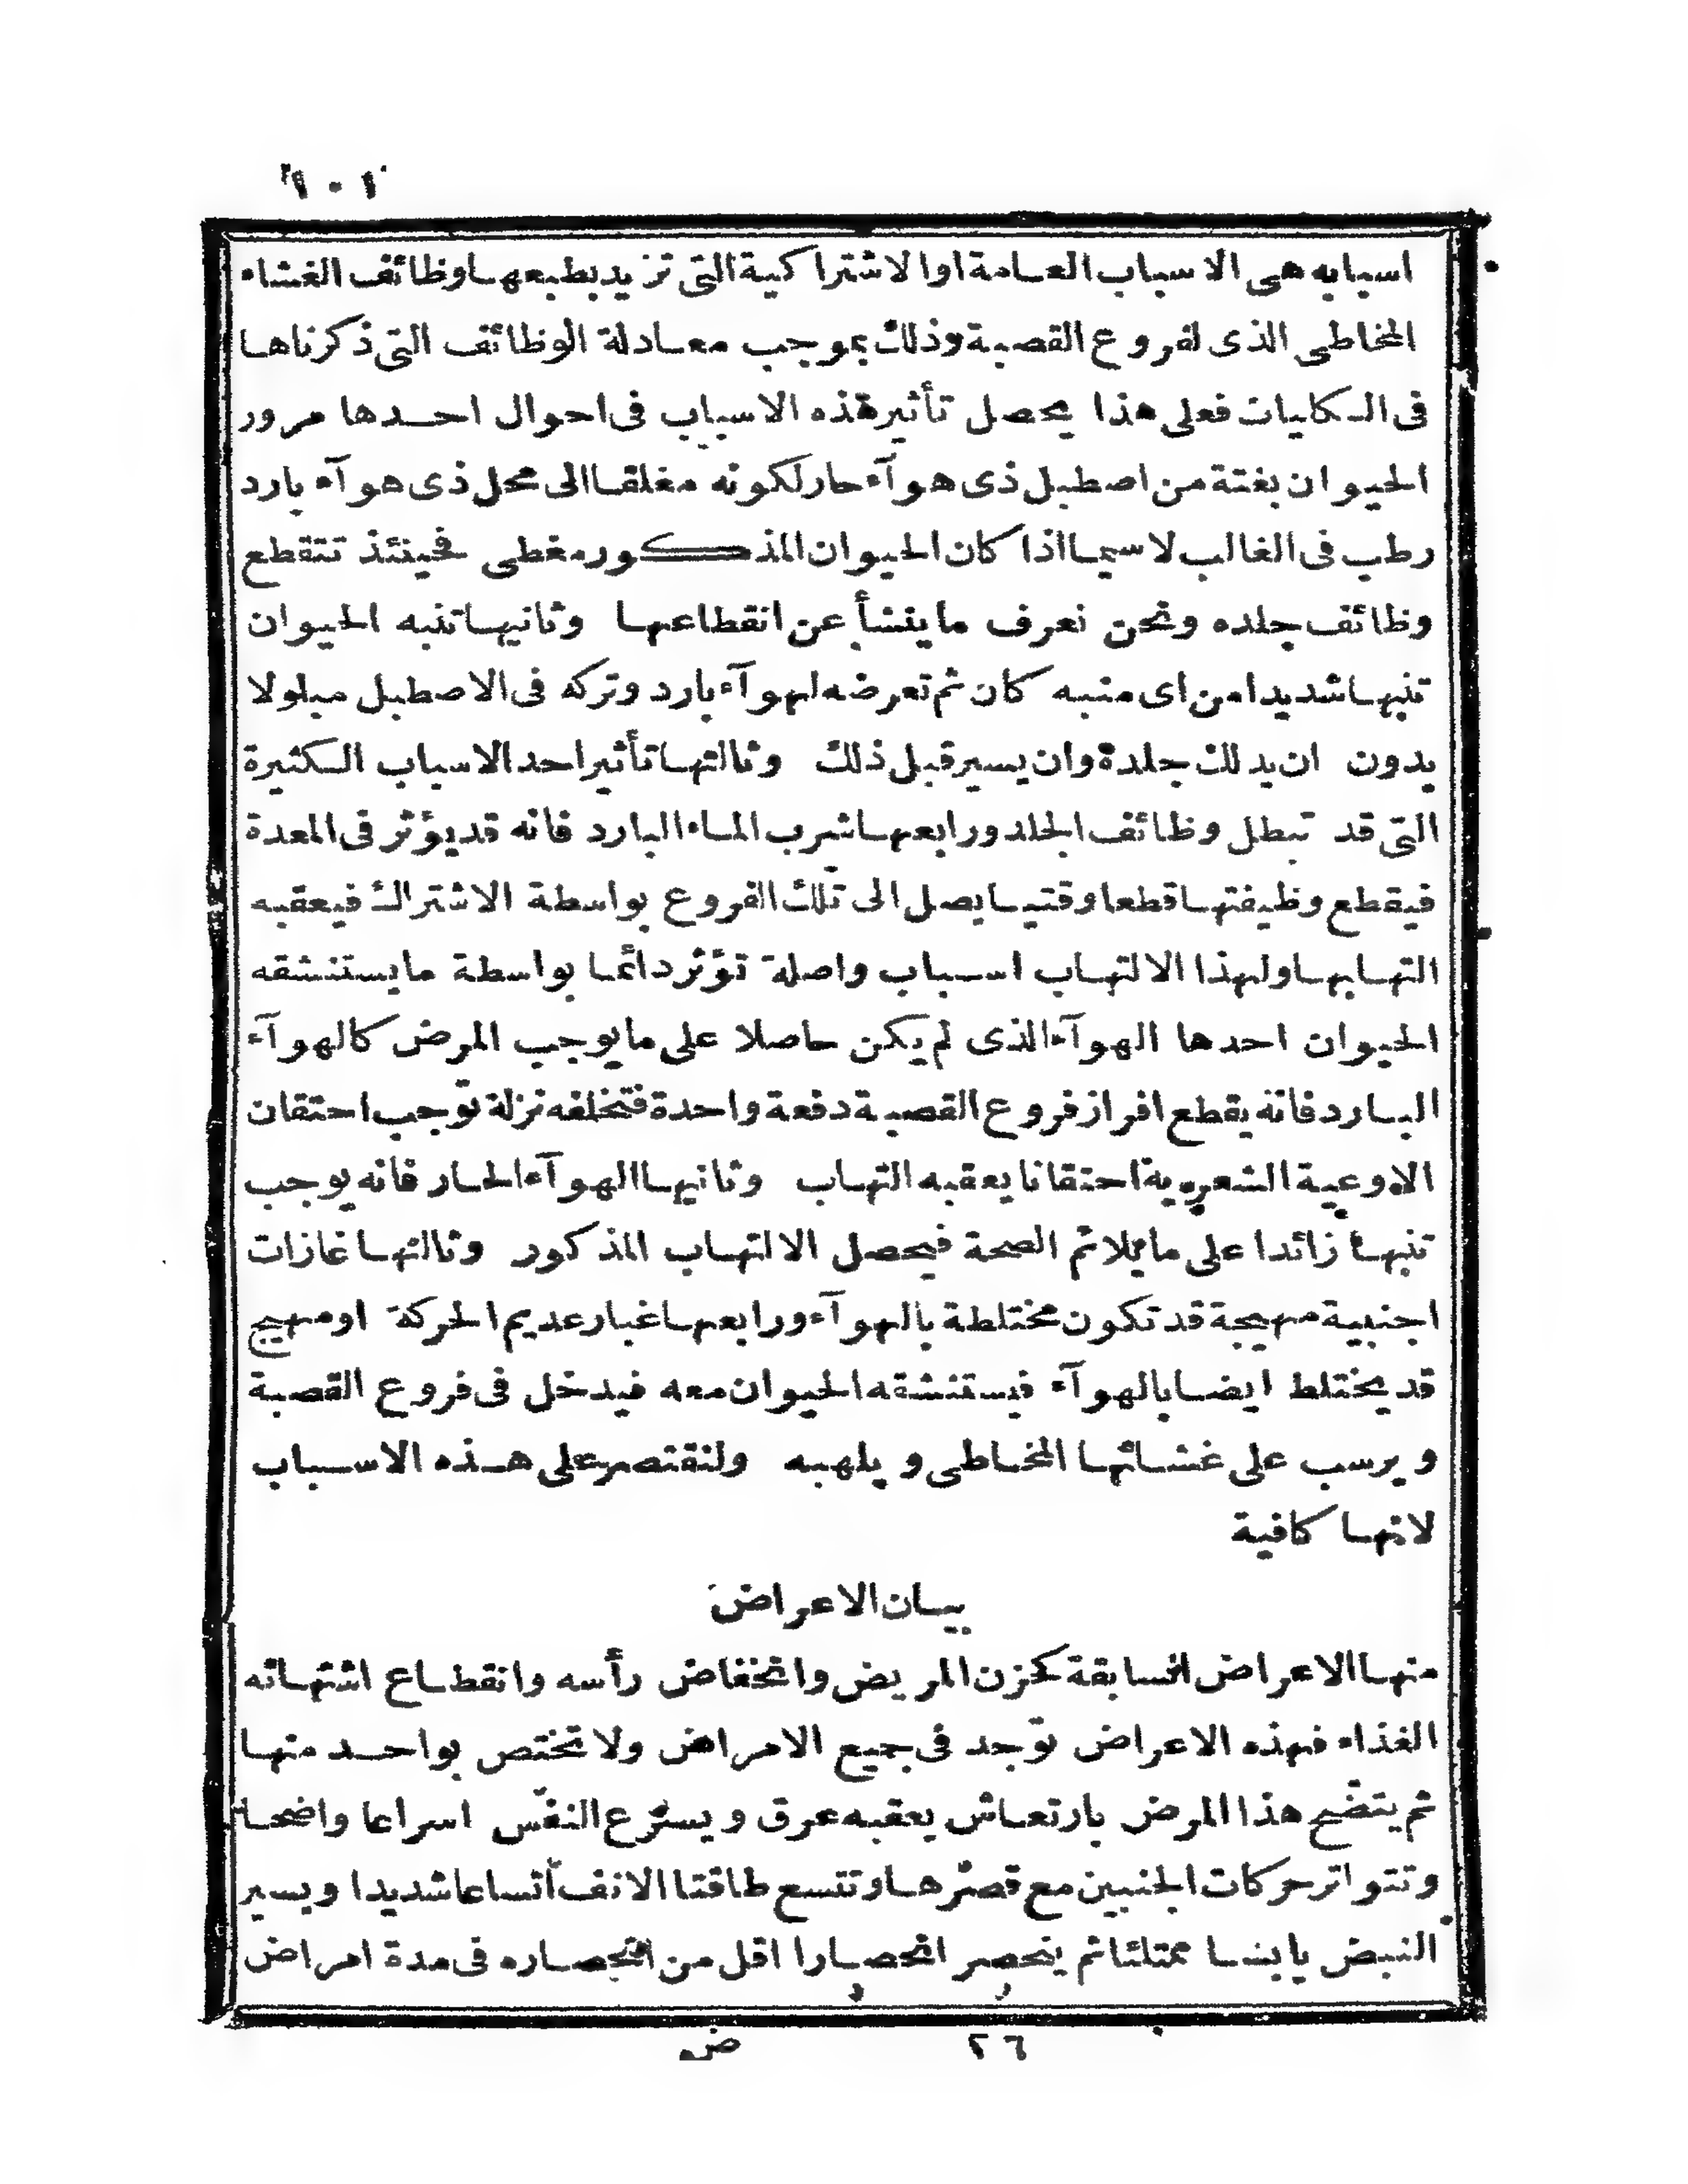 ٢٠١
اسبابه هى الاسباب العامة او الاشتراكية التى تزيد بطبعها وظائف الغشاء
المخاطى الذى لفروع القصبة وذلك بموجب معادلة الوظائف التى ذكرناها
فى الكليات فعلى هذا يحصل تأثير هذه الاسباب فى احوال احدها مرور
الحيوان بغتة من اصطبل ذى هوآء حار لكونه مغلقا الى محل ذى هوآء بارد
رطب فى الغالب لاسيما اذا كان الحيوان المذكور مغطى فحينئذ تتقطع
وظائف جلده ونحن نعرف ماينشأ عن انقطاعها وثانيها تنبه الحيوان
تنبها شديدا من اى منبه كان ثم تعرضه لهوآء بارد وتركه فى الاصطبل مبلولا
بدون ان يدلك جلده وان يسير قبل ذلك وثالثها تأثير احد الاسباب الكثيرة
التى قد تبطل وظائف الجلد ورابعها شرب الماء البارد فانه قد يؤثر فى المعدة
فيقطع وظيفتها قطعا وقتيا يصل الى تلك الفروع بواسطة الاشتراك فيعقبه
التهابها ولهذا الالتهاب اسباب واصلة تؤثر دائما بواسطة مايستنشقه
الحيوان احدها الهوآء الذى لم يكن حاصلا على مايوجب المرض كالهوآء
البارد فانه يقطع افراز فروع القصبة دفعة واحدة فتخلفه نزلة توجب احتقان
الاوعية الشعرية احتقانا يعقبه التهاب وثانيها الهوآء الحار فانه يوجب
تنبها زائدا على مايلائم الصحة فيحصل الالتهاب المذكور وثالثها غازات
اجنبية مهيجة قد تكون مختلطة بالهوآء ورابعها غبار عديم الحركة او مهيج
قد يختلط ايضا بالهوآء فيستنشقه الحيوان معه فيدخل فى فروع القصبة
ويرسب على غشائها المخاطى ويلهبه ولنقتصر على هذه الاسباب
لانها كافية
بيان الاعراض
منها الاعراض السابقة كحزن المريض وانخفاض رأسه وانقطاع اشتهائه
الغذاء فهذه الاعراض توجد فى جميع الامراض ولا تختص بواحد منها
ثم يتضح هذا المرض بارتعاش يعقبه عرق ويسرع النفس اسراعا واضحا
وتتواتر حركات الجنبين مع قصرها وتتسع طاقتا الانف اتساعا شديدا ويسير
النبض يابسا ممتلئا ثم ينحصر انحصارا اقل من انحصاره فى مدة امراض
٢٦ ض